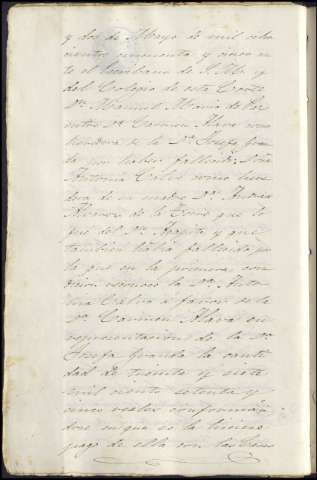 y dos de Mayo de mil ocho
cientos cincuenta y cinco an
te el Escribano de S. M. y
del Colegio de esta Corte
Dn. Manuel Maria de
entre Da. Carmen Alava como
heredera de la Da. Josefa
por haber fallecido; Doña
Antonia Calvo como here
dera de su madre Da. Andrea
de la Torre que lo
fue del Dn. Agapito y que
tambien habia fallecido, por
la que en la primera con
dicion la Da. Anto
nia Calvo á favor de la
Da. Carmen Alava en
representacion de la Da.
Josefa la canti
dad de treinta y siete
mil ciento setenta y
cinco reales conformán
dose en que se la hiciese
pago de ella con los bienes